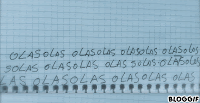 OLASOLAS OLASOLAS OLASOLAS OLASOLAS
SOLAS OLASOLAS OLAS SOLAS OLASOLAS
AS OLASOLAS OLASOLAS OLASOLAS OLAS
BLOGGIF